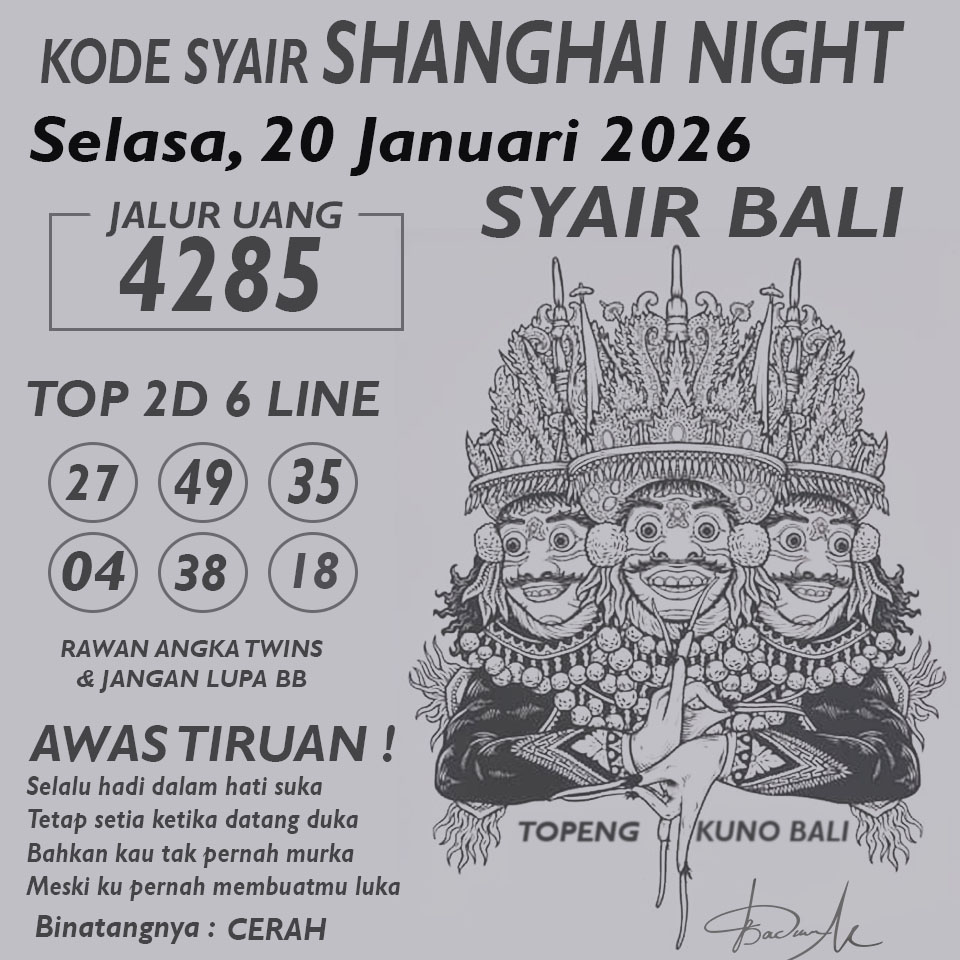 KODE SYAIR SHANGHAI NIGHT
Selasa, 20 Januari 2026
SYAIR BALI
JALUR UANG
4285
TOP 2D 6 LINE
27 49 35
04 38 18
RAWAN ANGKA TWINS
& JANGAN LUPA BB
AWAS TIRUAN !
Selalu hadi dalam hati suka
Tetap setia ketika datang duka
Bahkan kau tak pernah murka
Meski ku pernah membuatmu luka
Binatangnya : CERAH
TOPENG KUNO BALI